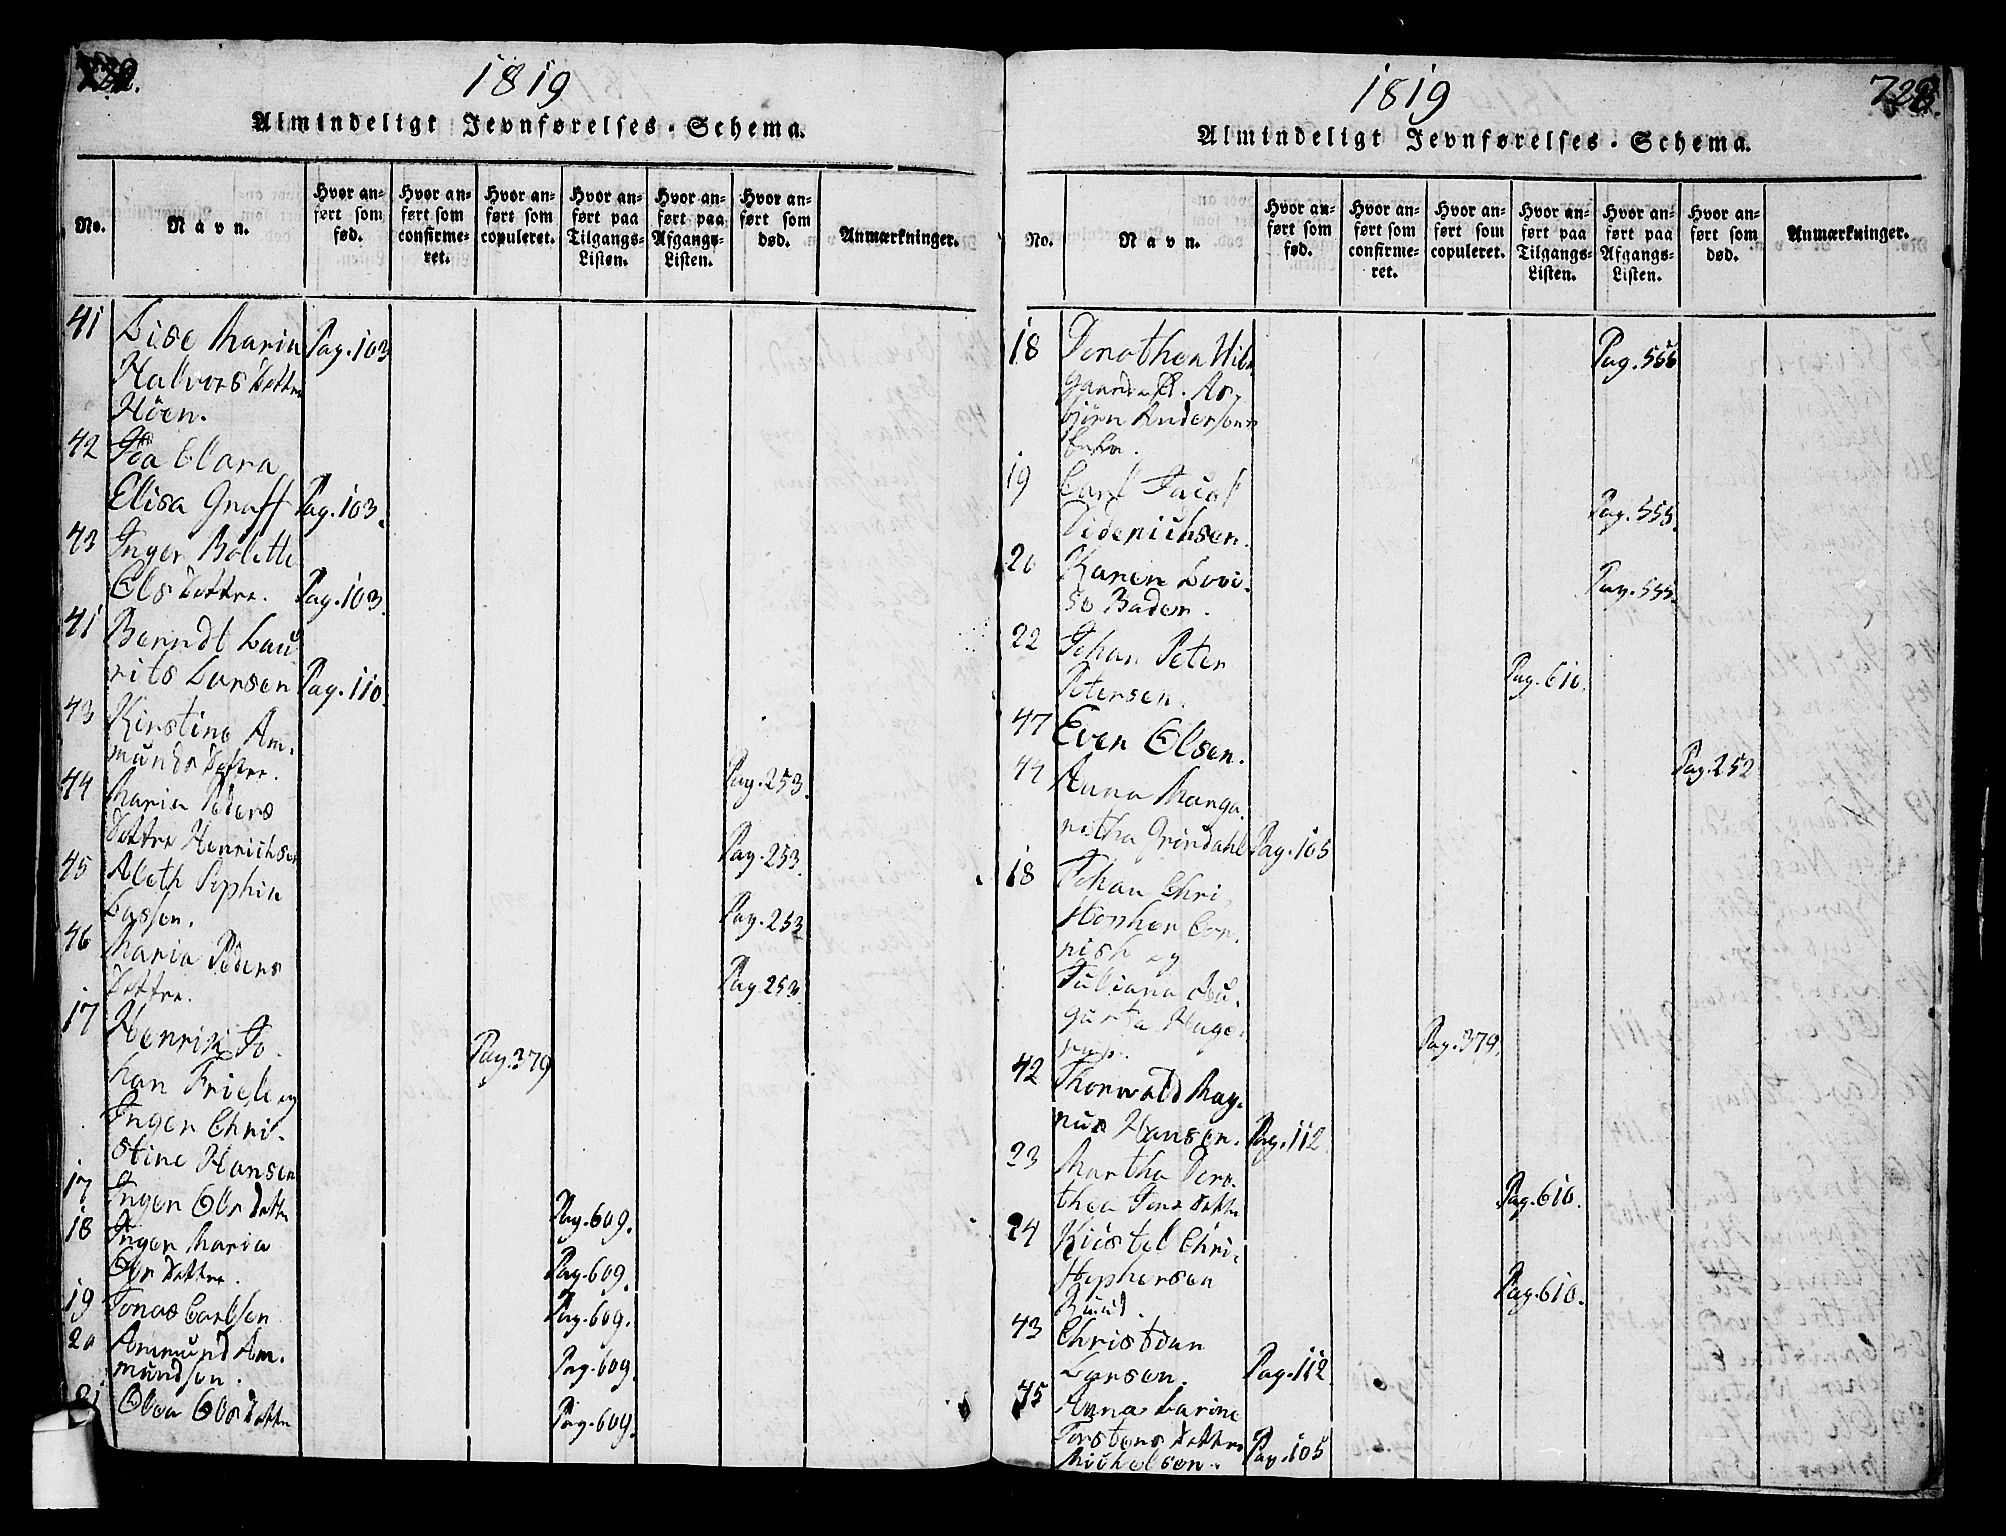 1819
Almindeligt Jevnførelses-Schema.
No.
Navn.
Hvor an-
ført som
fød.
Hvor an-
ført som
confirme-
ret.
Hvor an-
ført som
copuleret.
Hvor an-
ført paa
Tilgangs-
Listen.
Hvor an-
ført paa
Afgangs-
Listen.
Hvor an-
ført som
død.
Anmærkninger.
41 Lise Maria Pag. 103
Halvors Dattr
Höen.
42 Clara
Elisa Graff Pag. 103.
43 Inger Bolette
Ols Dattre. Pag. 103.
41 Berndt Lau
rits Larsen Pag. 110.
43 Kirstine Am.
munds Dattre. Pag. 253.
44 Maria Peders
Dattre Henrichsen Pag. 253.
45 Aleth Sophia
Lassen. Pag. 253
46 Maria Peders
Dattre. Pag. 253.
17 Henrik Jo. Pag. 379
han Friele og
Inger Chri.
stine Hansen
17 Inger Ols Dattre Pag. 609.
18 Inger Maria
Ols Dattre. Pag. 609.
19 Jonas Carlsen Pag. 609.
20 Ammund Am.
mundsen. Pag. 609.
21 Olea Ols Dattre Pag. 609.
1819
Almindeligt Jevnførelses-Schema.
No.
Navn.
Hvor an-
ført som
fød.
Hvor an-
ført som
confirme-
ret.
Hvor an-
ført som
copuleret.
Hvor an-
ført paa
Tilgangs-
Listen.
Hvor an-
ført paa
Afgangs-
Listen.
Hvor an-
ført som
død.
Anmærkninger.
18 Dorothea Pag. 555
As.
björn Andersens
19 Carl Jacob
Diderichsen. Pag. 555.
20 Karen Lovi-
se Bader. Pag. 555.
22 Johan Peter
Petersen. Pag. 610.
47 Even Olsen. Pag. 252
44 Anna Marga.
retha Gröndahl Pag. 105
18 Johan Chri.
stopher Cor.
nish og
Juliana Au.
gusta Huge.
rup. Pag. 379.
42 Thorwald Mag.
nus Hansen. Pag. 112
23 Martha Doro.
thea Jens Dattre Pag. 610.
24 Kiöstel Chri-
stophersen
Ruud. Pag. 610.
43 Christian
Larsen. Pag. 112
45 Anna Karine
Torstens Dattre
Michelsen. Pag. 105